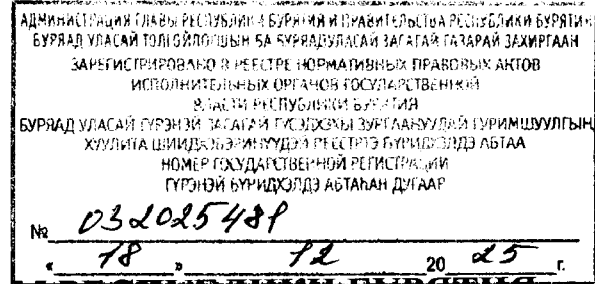 АДМИНИСТРАЦИЯ ГЛАВЫ РЕСПУБЛИКИ БУРЯТИЯ И ПРАВИТЕЛЬСТВА РЕСПУБЛИКИ БУРЯТИЯ
БУРЯАД УЛАСАЙ ТОЛГОЙЛОГШЫН БА БУРЯАД УЛАСАЙ ЗАСАГАЙ ГАЗАРАЙ ЗАХИРГААН
ЗАРЕГИСТРИРОВАНО В РЕЕСТРЕ НОРМАТИВНЫХ ПРАВОВЫХ АКТОВ
ИСПОЛНИТЕЛЬНЫХ ОРГАНОВ ГОСУДАРСТВЕННОЙ
ВЛАСТИ РЕСПУБЛИКИ БУРЯТИЯ
БУРЯАД УЛАСАЙ ГҮРЭНЭЙ ЗАСАГАЙ ГҮЙСЭДХЭХЫ ЗУРГААНУУДАЙ ГУРИМШУУЛГЫН
ХУУЛИТА ШИИДХЭБЭРИНҮҮДЭЙ РЕЕСТРТЭ БҮРИДХЭЛДЭ АБТАА
НОМЕР ГОСУДАРСТВЕННОЙ РЕГИСТРАЦИИ
ГҮРЭНЭЙ БҮРИДХЭЛДЭ АБТАҺАН ДУГААР
№ 032025481
« 18 » 12 20 25 г.
РЕСПУБЛИКИ БУРЯТИЯ